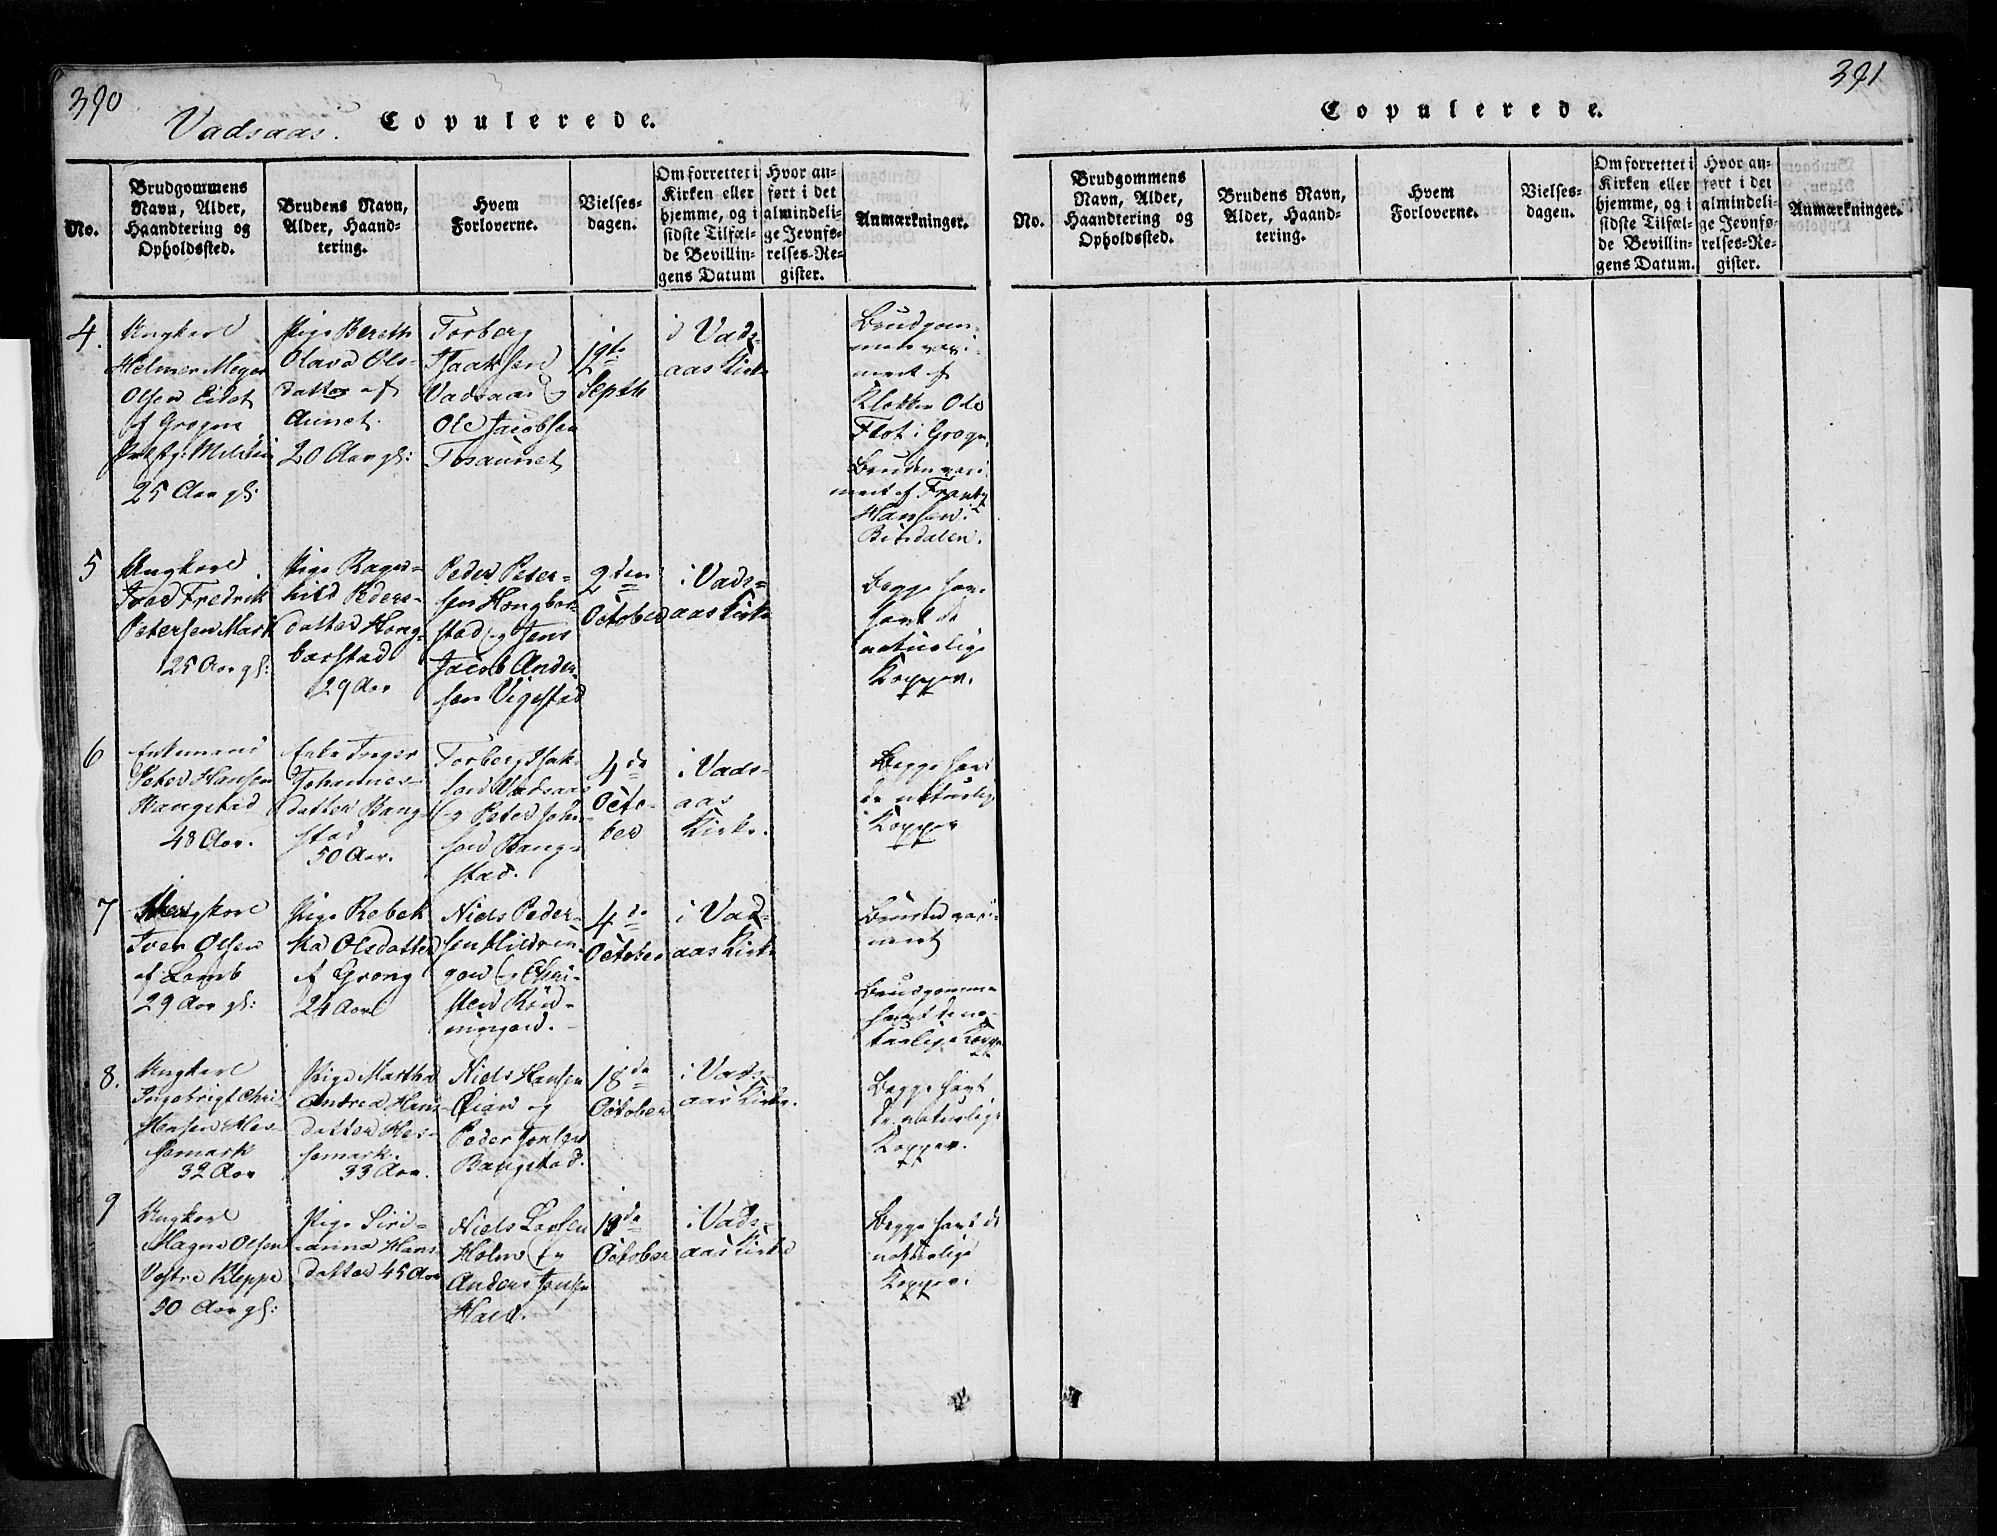 390
Vadsaas. Copulerede.
No.
Brudgommens
Navn, Alder,
Haandtering og
Opholdssted.
Brudens Navn,
Alder, Haand-
tering.
Hvem
Forloverne.
Vielses-
dagen.
Om forrettet i
Kirken eller
hjemme, og i
sidste Tilfæl-
de Bevillin-
gens Datum
Hvor an-
ført i det
almindeli-
ge Jevnfø-
relses-Re-
gister.
Anmærkninger.
4.
Ungkarl
Helmer Meyer
Olsen Eidet
af Grogn
25 Aar gl:
Pige Bereth
Olava Ols-
datter af
Aunet.
20 Aar gl:
Torberg
Isaaksen
Vadsaas og
Ole Jacobsen
Tosaunet
19de
Septb
i Vads-
aas Kirke
Brudgom-
men vaxi-
neret af
Klokker Ole
Flot i Grogn.
Bruden vaxi-
neret af Frants
Hansen i
Bindalen.
5
Ungkarl
Ivar Fredrik
Petersen Mark
25 Aar gl:
Pige Ragn-
hild Peders-
datter Hong-
barstad
29 Aar
Peder Peter-
sen Hongbar-
stad og Jens
Jacob Ander-
sen Vigestad
2den
October
i Vads-
aas Kirke
Begge hav-
havt de
naturlige
Kopper.
6
Enkemand
Peter Hansen
Bangstad
48 Aar.
Enke Inger
Johannes-
datter Bang-
stad
50 Aar.
Torberg Isak-
sen Vadsaas
og Peter John-
sen Bang-
stad.
4de
Octo-
ber
i Vads-
aas
Kirke.
Begge havt
de naturlige
Kopper
7
Ungkarl
Iver Olsen
af Lomb
29 Aar gl:
Pige Rebek
ka Olsdatter
af Grong
24 Aar
Niels Peder-
sen Hildrin-
gen og Chri-
sten Røn-
ningen.
4de
October
i Vad-
aas Kirke
Bruden vaxi-
neret
Brudgommen
havt de na-
turlige Kopper
8.
Ungkarl
Ingebrigt Chri-
stensen Hes-
semark
32 Aar
Pige Martha
Andrea Hans
datter Hes-
semark.
33 Aar.
Niels Hansen
Øian og
Peder Jonsen
Bangstad.
18de
October
i Vads-
aas Kirke.
Begge havt
de naturlige
Kopper.
9
Ungkarl
Magne Olsen
Vestre Kleppe
50 Aar gl:
Pige Siri-
anna Hans-
datter 45 Aar
Niels Larsen
Holm og
Anders Jensen
Hald.
18de
October
i Vads-
aas Kirke
Begge havt de
naturlige
Kopper.
391
Copulerede.
No.
Brudgommens
Navn, Alder,
Haandtering og
Opholdssted.
Brudens Navn,
Alder, Haand-
tering.
Hvem
Forloverne.
Vielses-
dagen.
Om forrettet i
Kirken eller
hjemme, og i
sidste Tilfæl-
de Bevillin-
gens Datum.
Hvor an-
ført i det
almindeli-
ge Jevnfø-
relses-Re-
gister.
Anmærkninger.